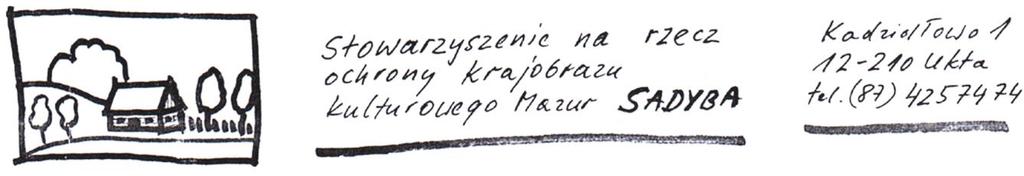 Stowarzyszenie na rzecz
ochrony krajobrazu
kulturowego Mazur SADYBA
Kadzidłowo 1
12-210 Ukta
tel. (87) 4257474